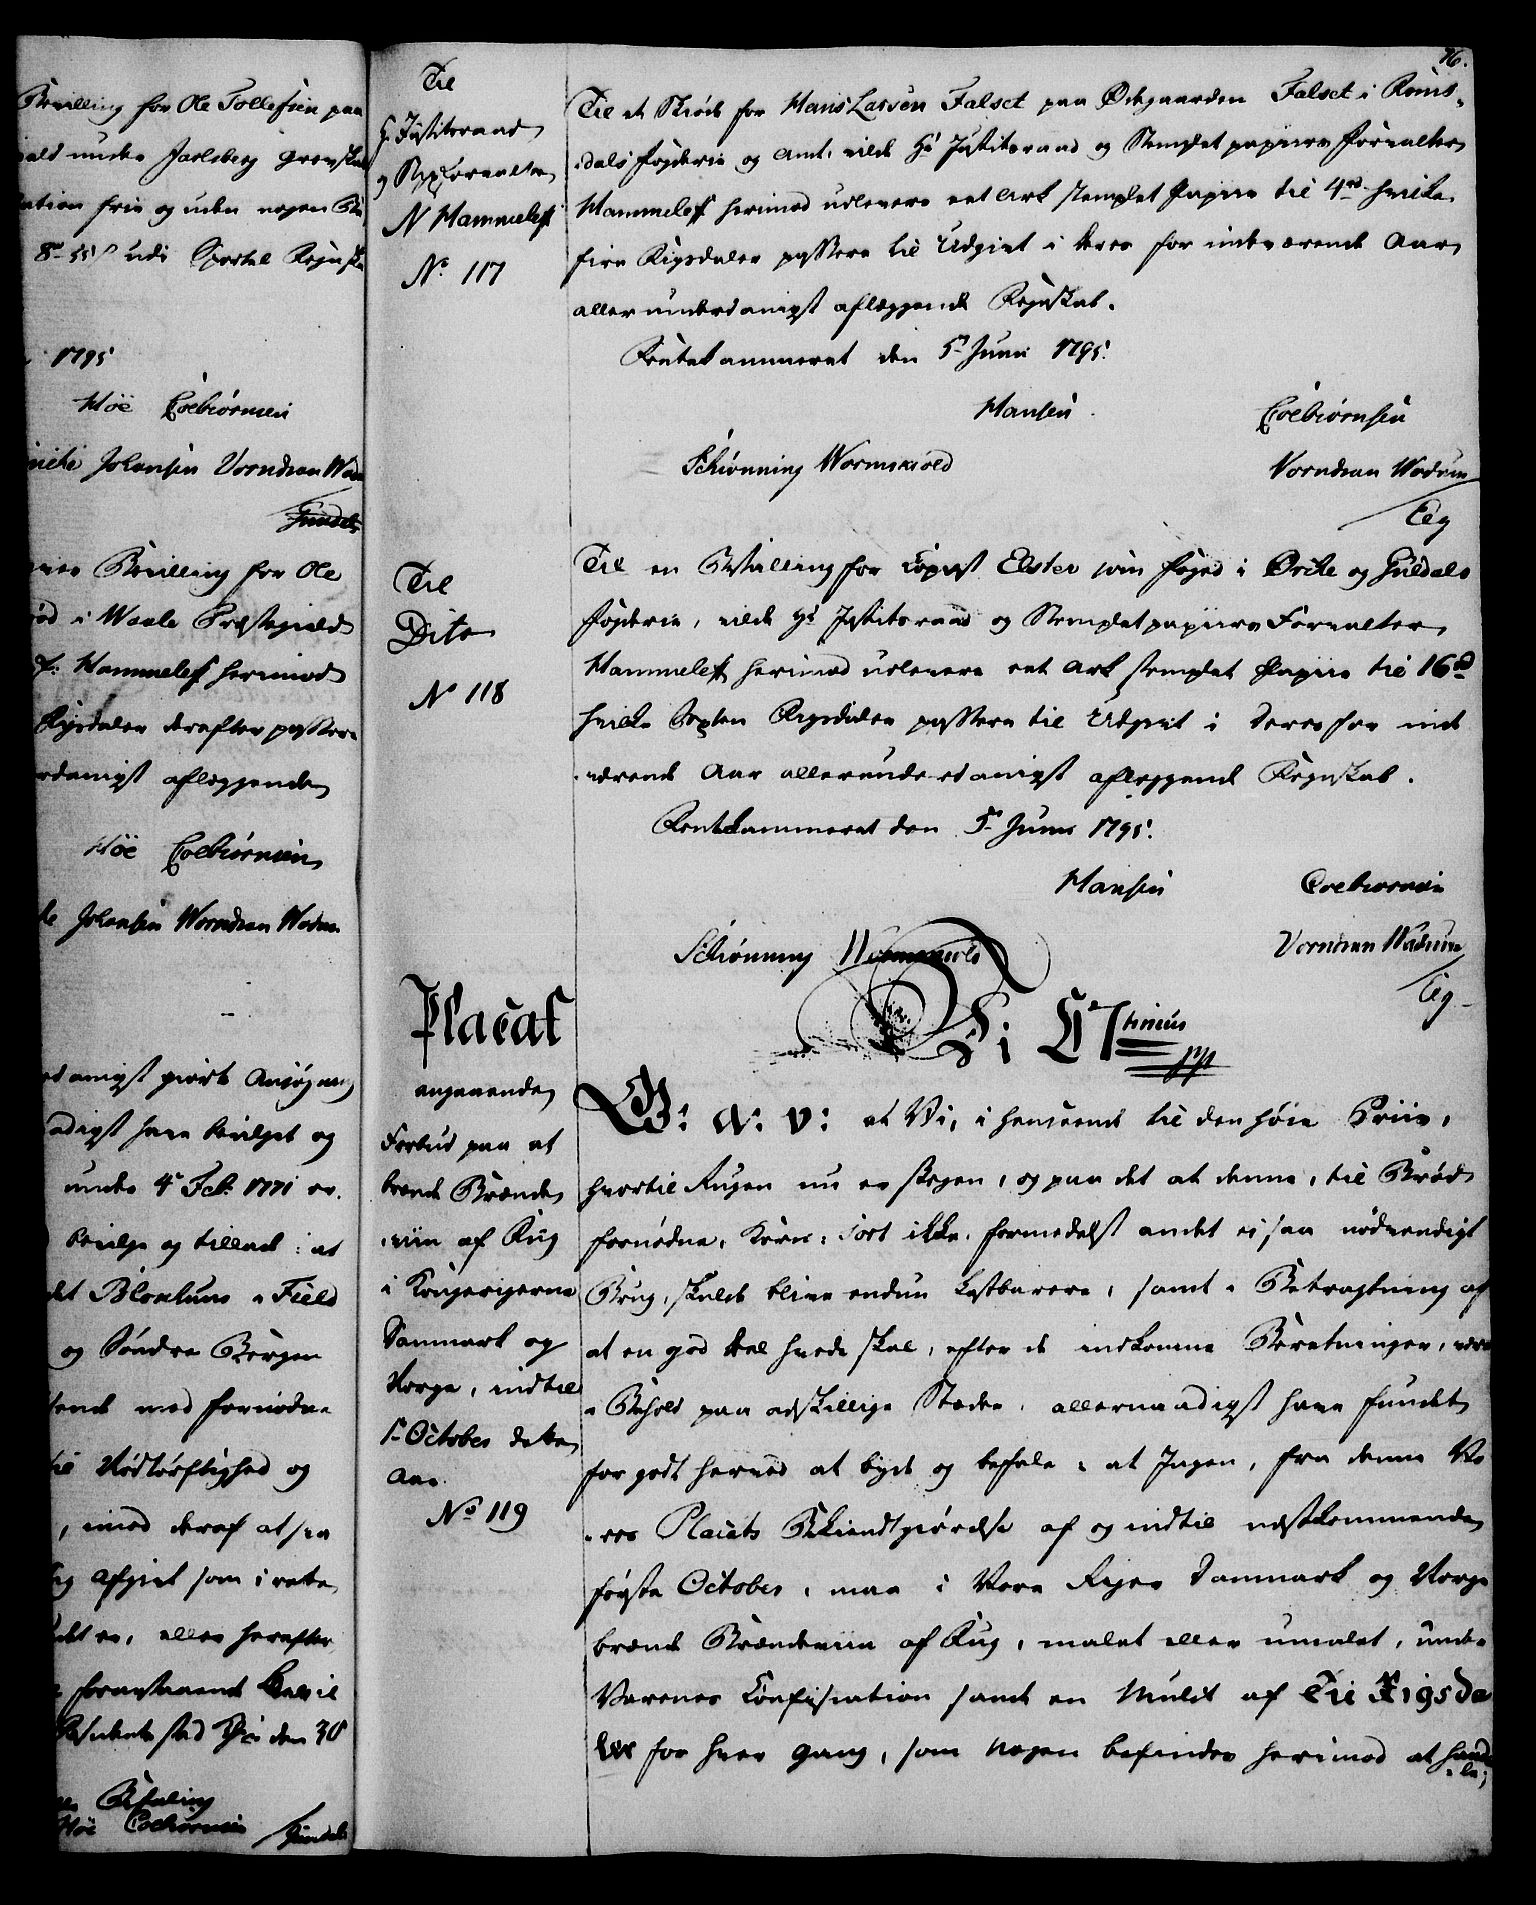 Bevilling for Ole Tollefsen paa
ald under Jarlsberg Grevskab
ation frie og uden nogen
8 rd 55 s udi Sportel Regnska
1795
Höe Colbiörnsen
Johansen Vorndran Wadum
Bevilling for Ole
i Waale Præstegield
Hammeleff herimod
Rigsdaler derefter passere
rdanigst aflæggende
Höe Colbiörnsen
Johansen Vorndran Wadum
rdanigst giort Ansøgning
adigst have bevilget og
under 4de Feb: 1771 er
bevilge og tillade: at
det Blonlunn i Field
og Söndre Bergen
med fornødne
til Nødtørftighed og
, imod deraf at svare
Afgivt som i rette
det er, eller herefter
forestaaende
Residentz stad Khn den 30
Befaling
Höe Colbiörnsen
76.
Til
Hr Justitsraad
og Stpp: Forvalter
N Hammeleff
No 117
Til et Skiøde for Hans Larsen Falset paa Ødegaarden Falset i Roms-
dals Fogderie og Amt, vilde Hr Justitsraad og Stemplet papiirs Forvalter
Hammeleff herimod udlevere eet Ark stemplet Papiir til 4 rd hvilke
fire Rigsdaler passere til Udgivt i Deres for indeværende Aar
allerunderdanigst aflæggende Regnskab.
Rentekammeret den 5te Junii 1795.
Hansen Colbiörnsen
Schiönning Wormskiold Vorndran Wadum
Til
Dito
No 118
Til en Bestalling for Copist Elster som Foged i Örcke og Guldals
Fogderie, vilde Hr Justitsraad og Stemplet papiirs Forvalter
Hammeleff herimod udlevere eet Ark stemplet Papiir til 16 rd
hvilke Sexten Rigsdaler passere til Udgivt i Deres for inde
værende Aar allerunderdanigst aflæggende Regnskab.
Rentekammeret den 5te Junii 1795.
Hansen Colbiörnsen
Schiönning Wormskiold Vorndran Wadum
Placat
angaaende
Forbud paa at
brænde Brænde
viin af Rug
i Kongerigerne
Danmark og
Norge, indtil
1te October dette
Aar.
No 119
Vi C 7 timus pp
G: A: V: at Vi, i henseende til den høie Priis,
hvortil Rugen nu er stegen, og paa det at denne, til Brød
fornødne, Korn-sort ikke, formedelst andet ei saa nødvendigt
Brug, skulde blive endnu kostbarere, samt i Betragtning af
at en god Deel hvede skal, efter de indkomne Beretninger, være
i Behold paa adskillige Steder, allernaadigst have fundet
for godt herved at byde og befale: at Ingen, fra denne Vo
res Placats Bekiendtgiørelse af og indtil næstkommende
første October, maa i Vore Riger Danmark og Norge
brænde Brændeviin af Rug, malet eller umalet, under
Varenes Confiscation samt en Mulct af Tie Rigsda
ler for hver Gang, som Nogen befindes herimod at hand
le;